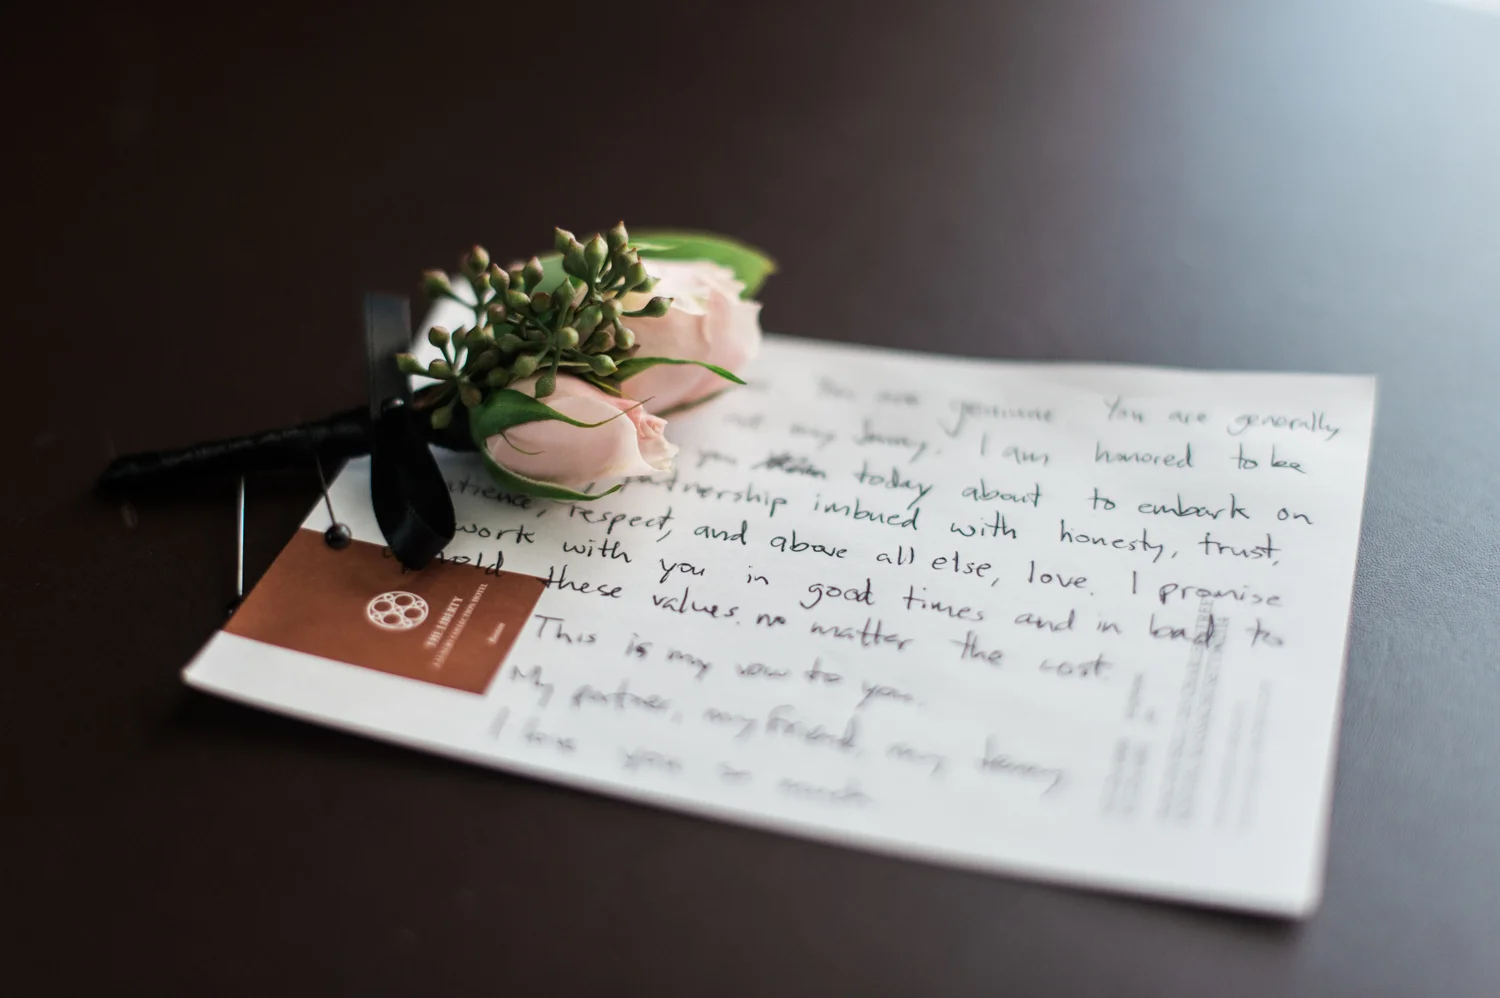 You are genuine You are generally
my Jenny. I am honored to be
you today about to embark on
partnership imbued with honesty, trust,
patience, respect, and above all else, love. I promise
work with you in good times and in bad to
uphold these values. no matter the cost
This is my vow to you.
My partner, my friend, my Jenny
I love you so much
THE LIBERTY
A LUXURY COLLECTION HOTEL
Boston